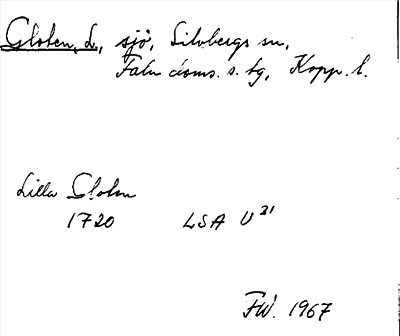 Gloten, L., sjö, Silvbergs sn,
Falu doms. s. tg, Kopp. l.
Lilla Gloten
1720 LSA U 21
FW. 1967